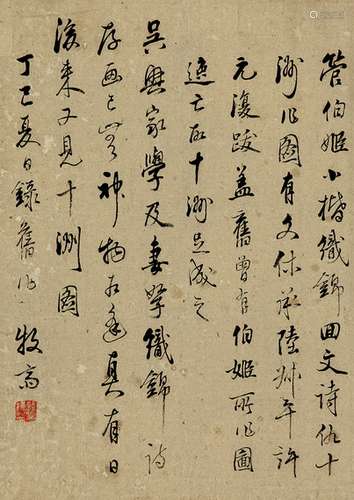 管伯姬小楷織錦回文詩仇十
洲作圖有文休承陸叔平許
元復跋蓋舊曾有伯姬所作圖
逸亡而十洲足成之
吳興家學及妻孥織錦詩
存畫已無神物有逢真有日
後來又見十洲圖
丁巳夏日錄舊作 牧齋